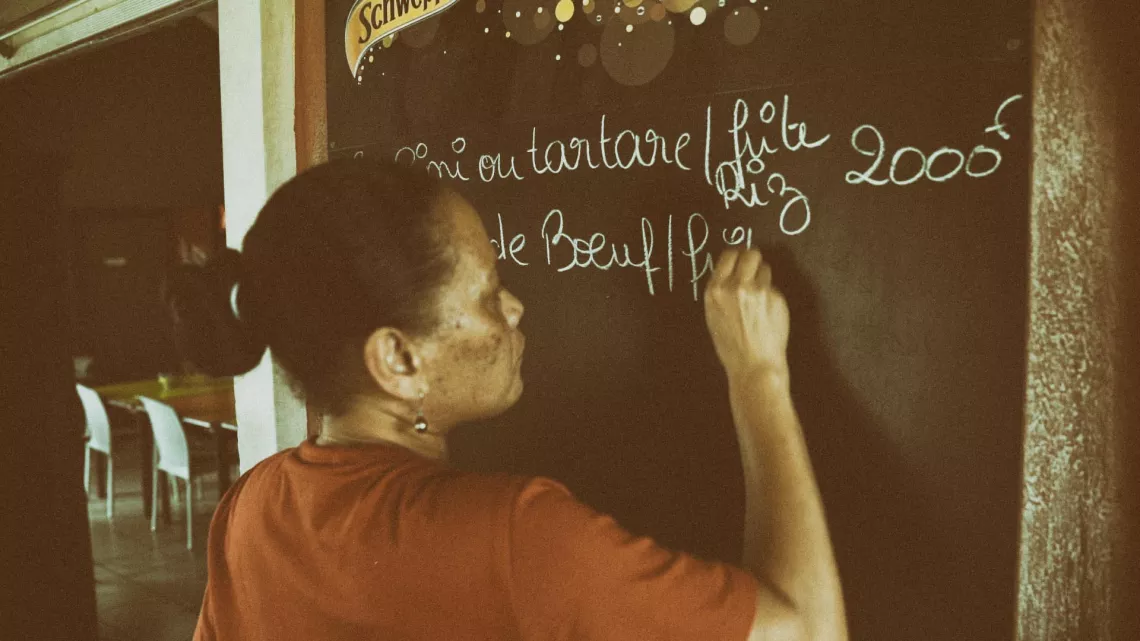 Schwepp
ou tartare / frite 2000 F
Riz
de Boeuf /